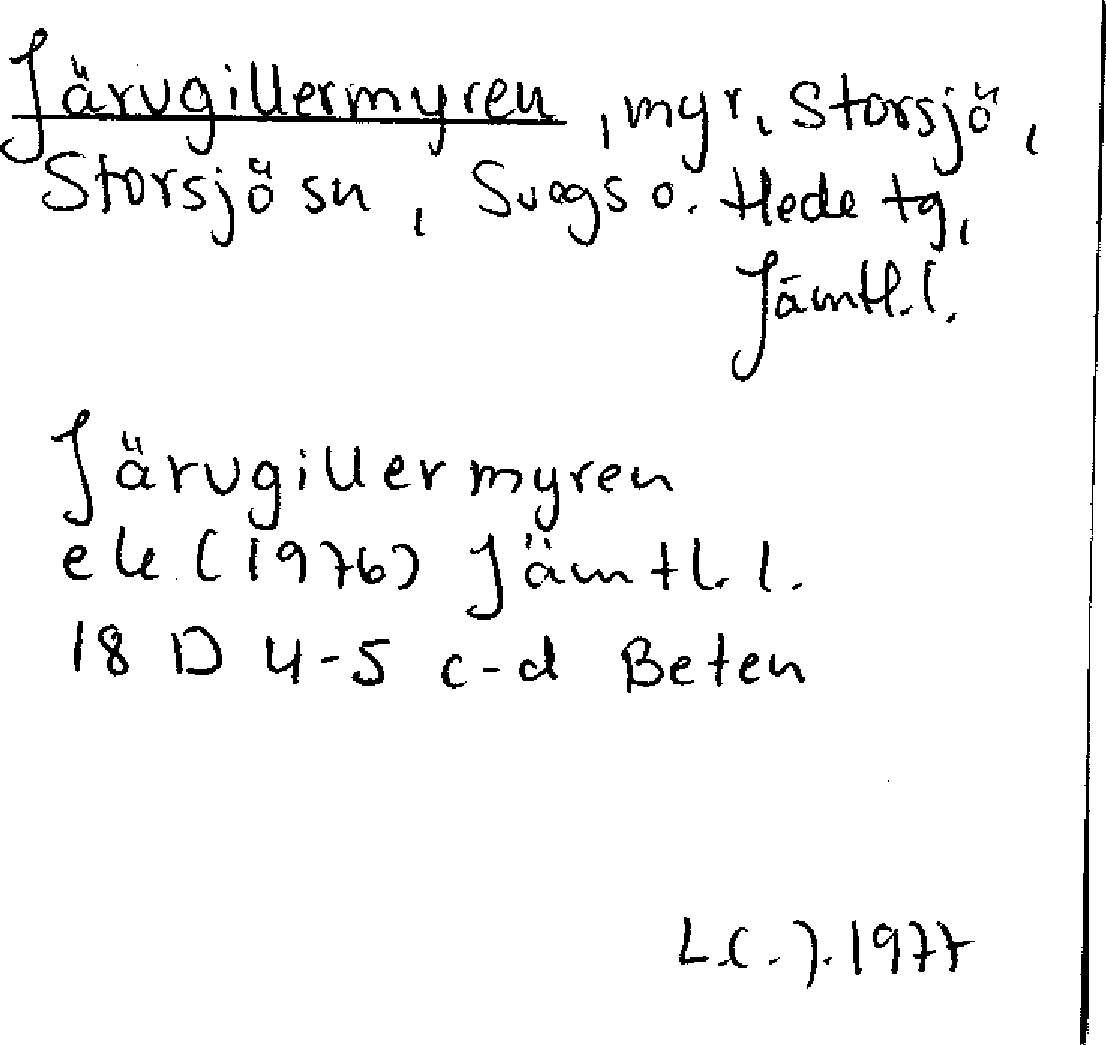 Järvgillermyren, myr, Storsjö,
Storsjö sn, Svegs o. Hede tg,
Jämtl.l.
Järvgillermyren
ek (1976) Jämtl. l.
18 D 4-5 c-d Beten
L.C.J. 1977